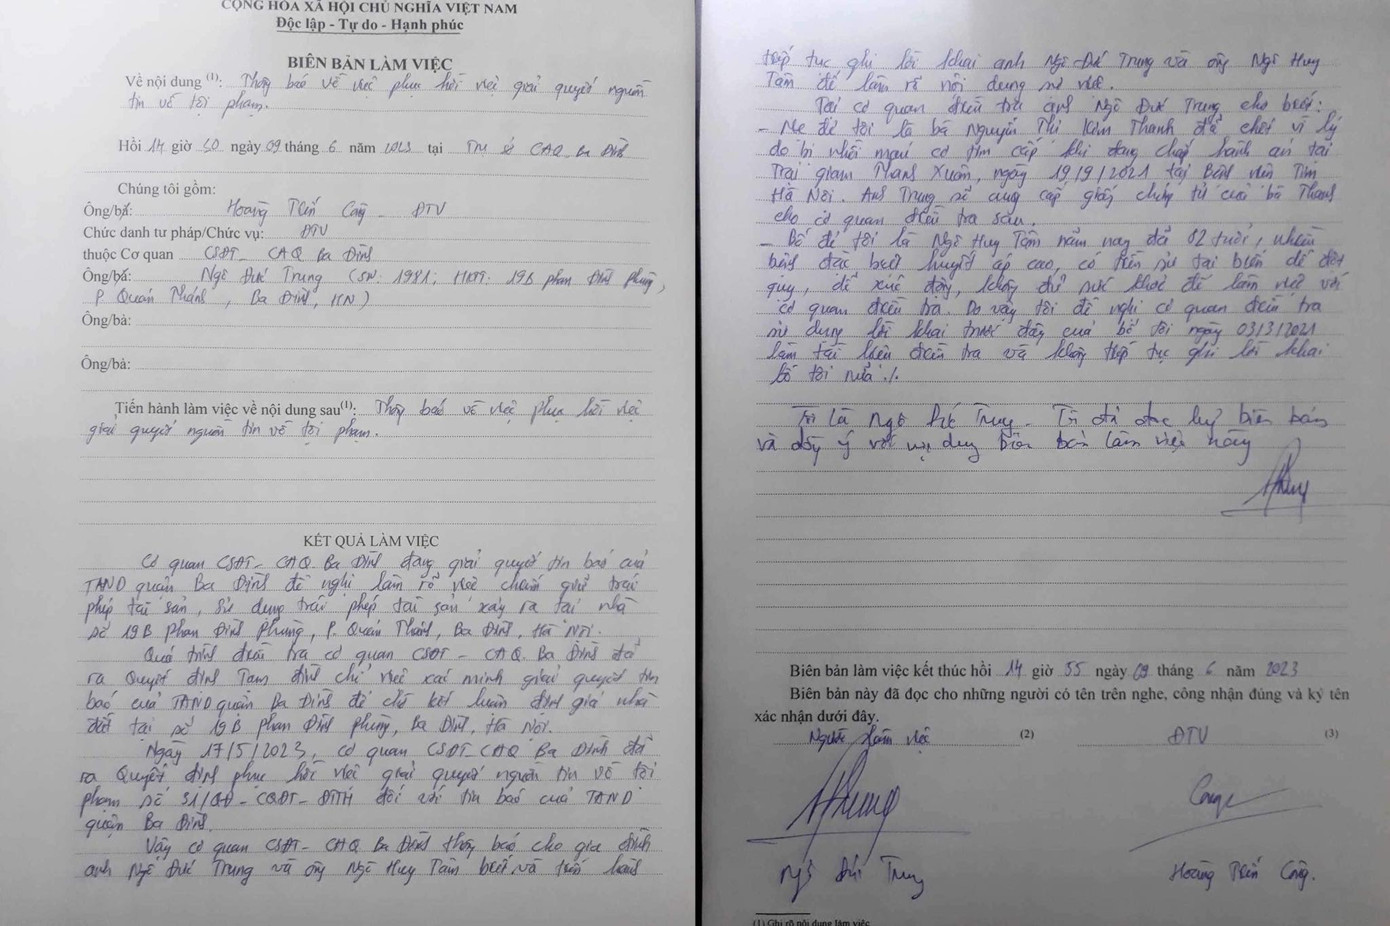 CỘNG HÒA XÃ HỘI CHỦ NGHĨA VIỆT NAM
Độc lập - Tự do - Hạnh phúc
BIÊN BẢN LÀM VIỆC
Về nội dung (1): Thông báo về việc phục hồi việc giải quyết nguồn
tin về tội phạm.
Hồi 14 giờ 30 ngày 09 tháng 6 năm 2023 tại Trụ sở CAQ Ba Đình
Chúng tôi gồm:
Ông/bà: Hoàng Tiến Công - ĐTV
Chức danh tư pháp/Chức vụ: ĐTV
thuộc Cơ quan CSĐT - CAQ Ba Đình
Ông/bà: Ngô Đức Trung (SN: 1981; HKTT: 19B Phan Đình Phùng,
P. Quán Thánh, Ba Đình, HN)
Ông/bà:
Ông/bà:
Tiến hành làm việc về nội dung sau(1): Thông báo về việc phục hồi việc
giải quyết nguồn tin về tội phạm.
KẾT QUẢ LÀM VIỆC
Cơ quan CSĐT - CAQ Ba Đình đang giải quyết tin báo của
TAND quận Ba Đình đề nghị làm rõ việc chiếm giữ trái
phép tài sản, sử dụng trái phép tài sản xảy ra tại nhà
số 19B Phan Đình Phùng, P. Quán Thánh, Ba Đình, Hà Nội.
Quá trình điều tra cơ quan CSĐT - CAQ. Ba Đình đã
ra Quyết định Tạm đình chỉ việc xác minh giải quyết tin
báo của TAND quận Ba Đình để chờ kết luận định giá nhà
đất tại số 19B Phan Đình Phùng, Ba Đình, Hà Nội.
Ngày 17/5/2023, cơ quan CSĐT - CAQ Ba Đình đã
ra Quyết định phục hồi việc giải quyết nguồn tin về tội
phạm số 31/QĐ - CQĐT - ĐTTH đối với tin báo của TAND
quận Ba Đình.
Vậy cơ quan CSĐT - CAQ Ba Đình thông báo cho gia đình
anh Ngô Đức Trung và ông Ngô Huy Tâm biết và tiến hành
tiếp tục ghi lời khai anh Ngô Đức Trung và ông Ngô Huy
Tâm để làm rõ nội dung sự việc.
Tại cơ quan điều tra anh Ngô Đức Trung cho biết:
- Mẹ đẻ tôi là bà Nguyễn Thị Kim Thanh đã chết vì lý
do bị nhồi máu cơ tim cấp khi đang chấp hành án tại
Trại giam Thanh Xuân, ngày 19/9/2021 tại Bệnh viện Tim
Hà Nội. Anh Trung sẽ cung cấp giấy chứng tử của bà Thanh
cho cơ quan điều tra sau.
- Bố đẻ tôi là Ngô Huy Tâm năm nay đã 82 tuổi, nhiều
bệnh đặc biệt huyết áp cao, có tiền sử tai biến dễ đột
quỵ, dễ xúc động, không đủ sức khoẻ để làm việc với
cơ quan điều tra. Do vậy tôi đề nghị cơ quan điều tra
sử dụng lời khai trước đây của bố tôi ngày 03/3/2021
làm tài liệu điều tra và không tiếp tục ghi lời khai
bố tôi nữa ./.
Tôi là Ngô Đức Trung. Tôi đã đọc kỹ biên bản
và đồng ý với nội dung biên bản làm việc này
Biên bản làm việc kết thúc hồi 14 giờ 55 ngày 09 tháng 6 năm 2023
Biên bản này đã đọc cho những người có tên trên nghe, công nhận đúng và ký tên
xác nhận dưới đây.
Người làm việc (2) ĐTV (3)
Ngô Đức Trung Hoàng Tiến Công.
(1) Ghi rõ nội dung làm việc